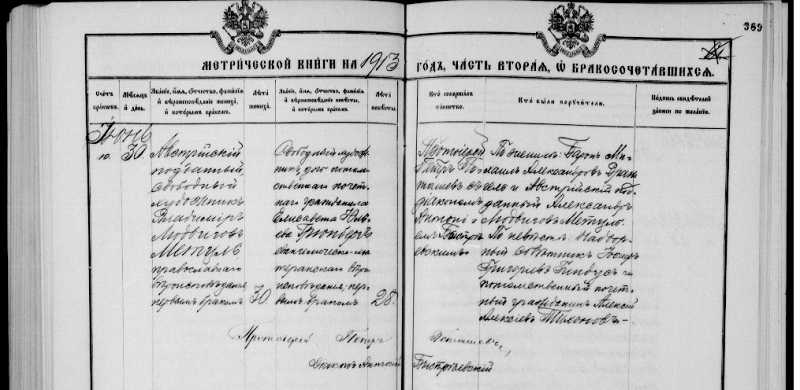 369
МЕТРИЧЕСКОЙ КНИГИ НА 1913
ГОДЪ, ЧАСТЬ ВТОРАЯ, Ѡ БРАКОСОЧЕТАВШИХСЯ.
Счетъ браковъ.
Мѣсяцъ и день.
Званіе, имя, отчество, фамилія и вѣроисповѣданіе жениха, и которымъ бракомъ.
Лѣта жениха.
Званіе, имя, отчество, фамилія и вѣроисповѣданіе невѣсты, и которымъ бракомъ.
Лѣта невѣсты.
Кто совершалъ таинство.
Кто были поручители.
Подпись свидѣтелей записи по желанію.
10.
30
Австрійскій
подданный,
свободный
художникъ
Владиміръ
Людвиговъ
православнаго
вѣроисповѣданія
первымъ бракомъ
30
Свободный худож-
никъ, дочь потом-
ственнаго почет-
наго гражданина
Елисавета
евангелическо-лю-
теранскаго вѣро-
исповѣданія, пер-
вымъ бракомъ
28.
Протоіерей
Петръ
съ
діакономъ
По женихѣ: Баронъ Ми-
хаилъ Александровъ
и Австрійскій под-
данный Александръ
Людвиговъ
По невѣстѣ: Надвор-
ный совѣтникъ
Григорьевъ и
потомственный почет-
ный гражданинъ Алексѣй
Алексѣевъ Тихоновъ.
Протоіерей Петръ
Діаконъ Антоній